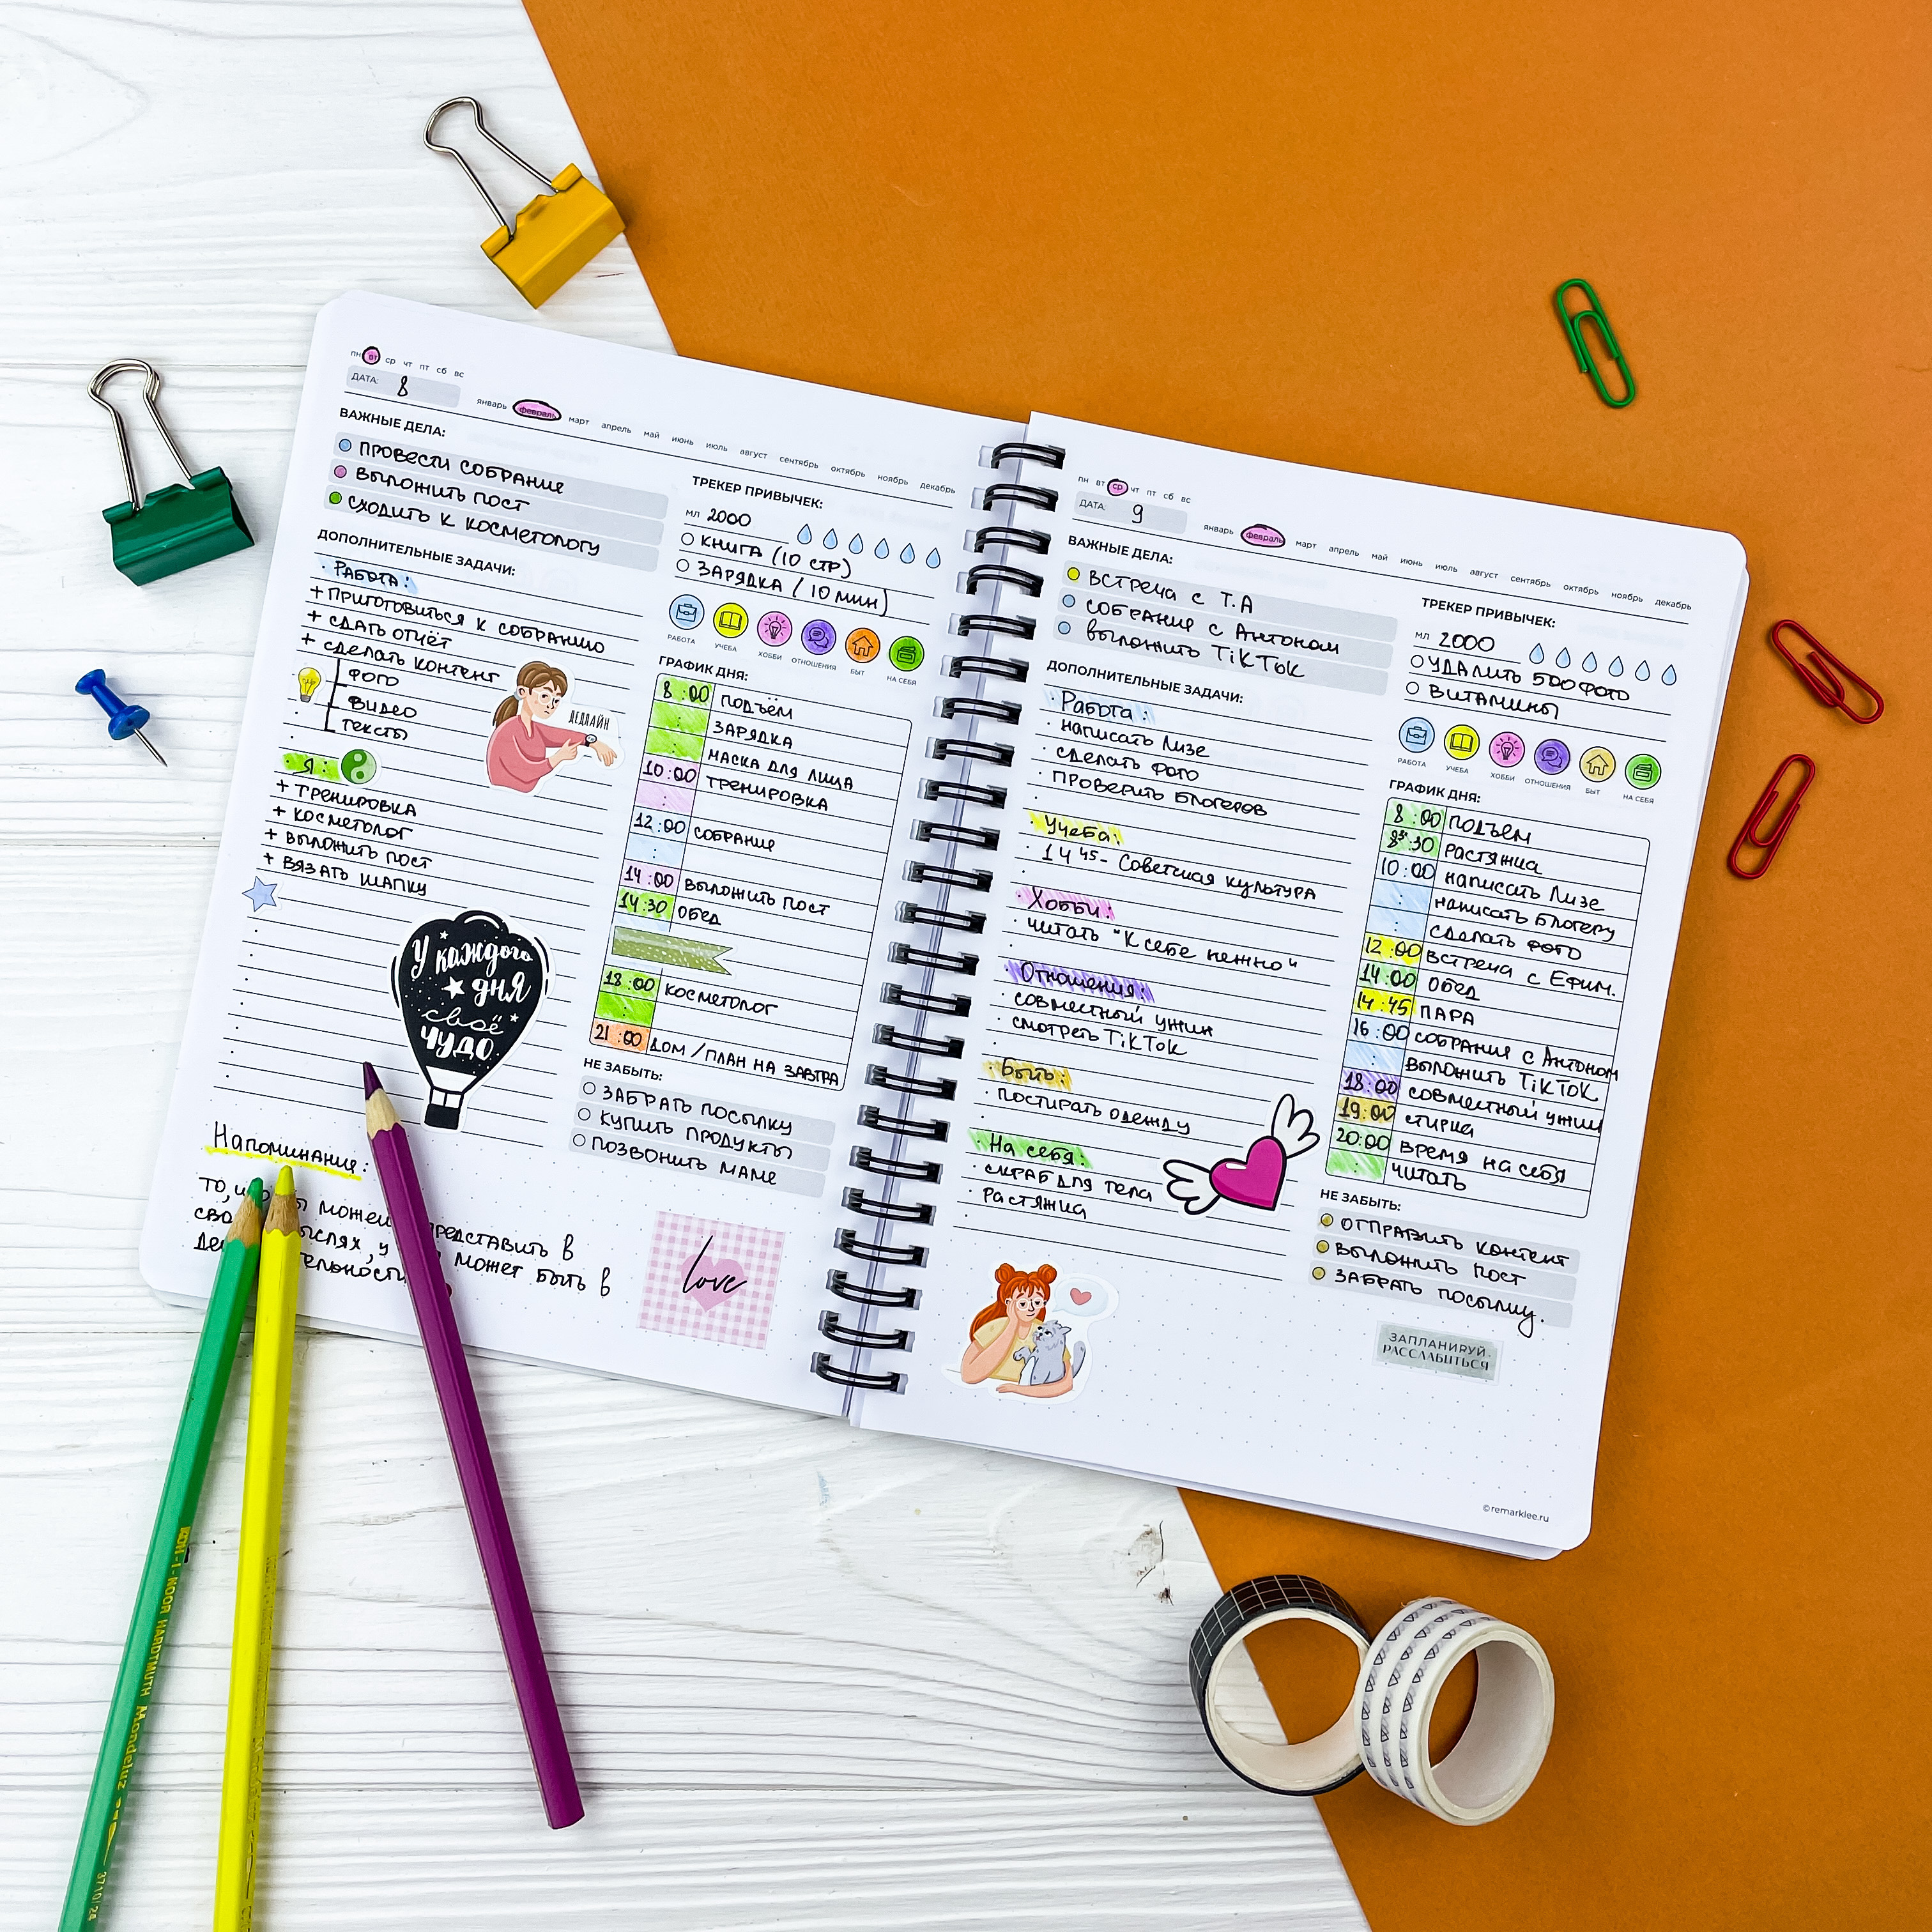 пн вт ср чт пт сб вс
ДАТА: 8
январь февраль март апрель май июнь июль август сентябрь октябрь ноябрь декабрь
ВАЖНЫЕ ДЕЛА:
ПРОВЕСТИ СОБРАНИЕ
ВЫЛОЖИТЬ ПОСТ
СХОДИТЬ К КОСМЕТОЛОГУ
ДОПОЛНИТЕЛЬНЫЕ ЗАДАЧИ:
РАБОТА:
+ ПРИГОТОВИТЬСЯ К СОБРАНИЮ
+ СДАТЬ ОТЧЁТ
+ СДЕЛАТЬ КОНТЕНТ
ФОТО
ВИДЕО
ТЕКСТЫ
ДЕДЛАЙН
Я:
+ ТРЕНИРОВКА
+ КОСМЕТОЛОГ
+ ВЫЛОЖИТЬ ПОСТ
+ ВЯЗАТЬ ШАПКУ
У каждого
дня
своё
ЧУДО
Напоминание:
ТО,
можеш
представить в
сво
мыслях, у
может быть в
love
ТРЕКЕР ПРИВЫЧЕК:
МЛ 2000
КНИГА (10 СТР)
ЗАРЯДКА (10 МИН)
РАБОТА УЧЕБА ХОББИ ОТНОШЕНИЯ БЫТ НА СЕБЯ
ГРАФИК ДНЯ:
8:00 ПОДЪЁМ
: ЗАРЯДКА
: МАСКА ДЛЯ ЛИЦА
10:00 ТРЕНИРОВКА
:
12:00 СОБРАНИЕ
:
14:00 ВЫЛОЖИТЬ ПОСТ
14:30 ОБЕД
18:00 КОСМЕТОЛОГ
:
21:00 ДОМ / ПЛАН НА ЗАВТРА
НЕ ЗАБЫТЬ:
ЗАБРАТЬ ПОСЫЛКУ
КУПИТЬ ПРОДУКТЫ
ПОЗВОНИТЬ МАМЕ
пн вт ср чт пт сб вс
ДАТА: 9
январь февраль март апрель май июнь июль август сентябрь октябрь ноябрь декабрь
ВАЖНЫЕ ДЕЛА:
ВСТРЕЧА С Т.А
СОБРАНИЕ С АНТОНОМ
ВЫЛОЖИТЬ TikTok
ДОПОЛНИТЕЛЬНЫЕ ЗАДАЧИ:
Работа:
НАПИСАТЬ ЛИЗЕ
СДЕЛАТЬ ФОТО
ПРОВЕРИТЬ БЛОГЕРОВ
Учеба:
14 45 - Советская культура
Хобби:
ЧИТАТЬ "К СЕБЕ НЕЖНО"
Отношения:
СОВМЕСТНЫЙ УЖИН
СМОТРЕТЬ TikTok
Быть:
ПОСТИРАТЬ ОДЕЖДУ
На себя:
СКРАБ ДЛЯ ТЕЛА
РАСТЯЖКА
ТРЕКЕР ПРИВЫЧЕК:
МЛ 2000
УДАЛИТЬ 500 ФОТО
ВИТАМИНЫ
РАБОТА УЧЕБА ХОББИ ОТНОШЕНИЯ БЫТ НА СЕБЯ
ГРАФИК ДНЯ:
8:00 ПОДЪЕМ
:30 РАСТЯЖКА
10:00 НАПИСАТЬ ЛИЗЕ
: НАПИСАТЬ БЛОГЕРУ
: СДЕЛАТЬ ФОТО
12:00 ВСТРЕЧА С ЕФИМ.
14:00 ОБЕД
14:45 ПАРА
16:00 СОБРАНИЕ С АНТОНОМ
: ВЫЛОЖИТЬ TikTok
18:00 СОВМЕСТНЫЙ УЖИН
19:00 СТИРКА
20:00 ВРЕМЯ НА СЕБЯ
: ЧИТАТЬ
НЕ ЗАБЫТЬ:
ОТПРАВИТЬ КОНТЕНТ
ВЫЛОЖИТЬ ПОСТ
ЗАБРАТЬ ПОСЫЛКУ.
ЗАПЛАНИРУЙ
РАССЛАБИТЬСЯ
©remarklee.ru
KOH-I-NOOR HARDTMUTH Mondeluz
3710/24